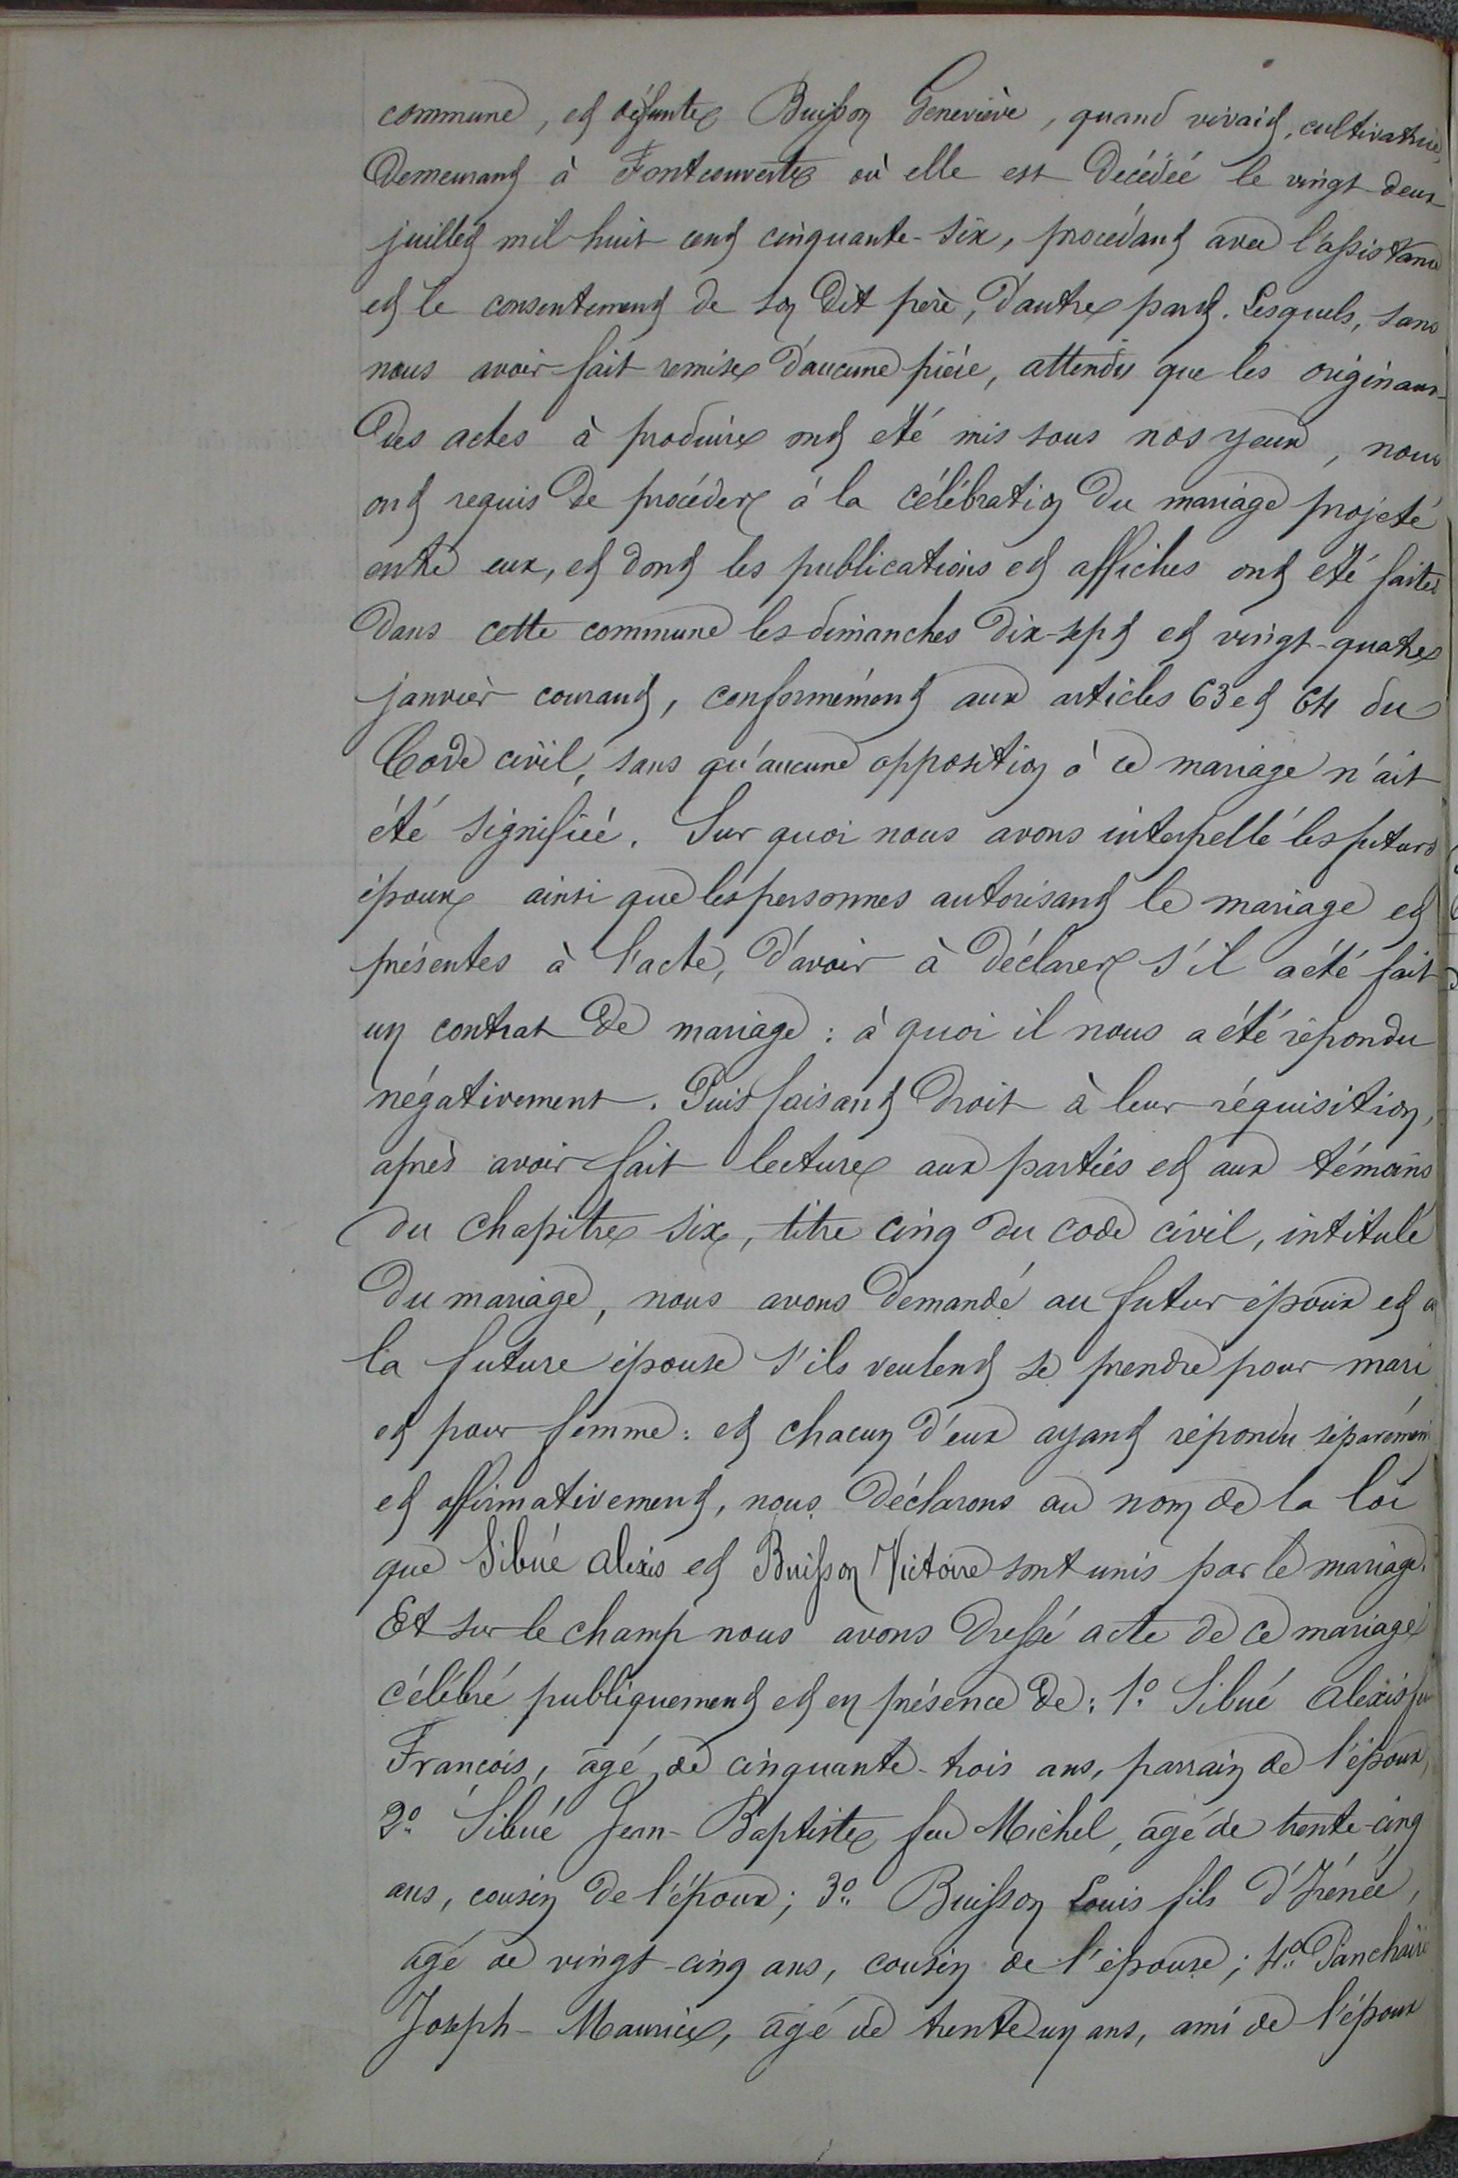 commune, et défunte Buisson Geneviève, quand vivait, cultivatrice,
Demeurant à Fontcouverte où elle est Décédée le vingt-deux
juillet mil huit cent cinquante-six, procédant avec l'assistance
et le consentement de son dit père, d'autre part. Lesquels, sans
nous avoir fait remise d'aucune pièce, attendu que les originaux
des actes à produire ont été mis sous nos yeux, nous
ont requis de procéder à la célébration du mariage projeté
entre eux, et dont les publications et affiches ont été faites
dans cette commune les dimanches dix-sept et vingt-quatre
janvier courant, conformément aux articles 63 et 64 du
Code civil, sans qu'aucune opposition à ce mariage n'ait
été signifiée. Sur quoi nous avons interpellé les futurs
époux ainsi que les personnes autorisant le mariage et
présentes à l'acte, d'avoir à déclarer s'il a été fait
un contrat de mariage : à quoi il nous a été répondu
négativement. Puis faisant droit à leur réquisition,
après avoir fait lecture aux parties et aux témoins
du chapitre six, titre cinq du code civil, intitulé
Du mariage, nous avons demandé au futur époux et à
la future épouse s'ils veulent se prendre pour mari
et pour femme : et chacun d'eux ayant répondu séparément
et affirmativement, nous déclarons au nom de la loi
que Sibué Alexis et Buisson Victoire sont unis par le mariage.
Et sur le champ nous avons dressé acte de ce mariage
célébré publiquement et en présence de : 1° Sibué Alexis feu
François, âgé de cinquante-trois ans, parrain de l'époux,
2° Sibué Jean-Baptiste feu Michel, âgé de trente-cinq
ans, cousin de l'époux ; 3° Buisson Louis fils d'Irénée,
âgé de vingt-cinq ans, cousin de l'épouse ; 4°
Joseph-Maurice, âgé de trente un ans, ami de l'époux